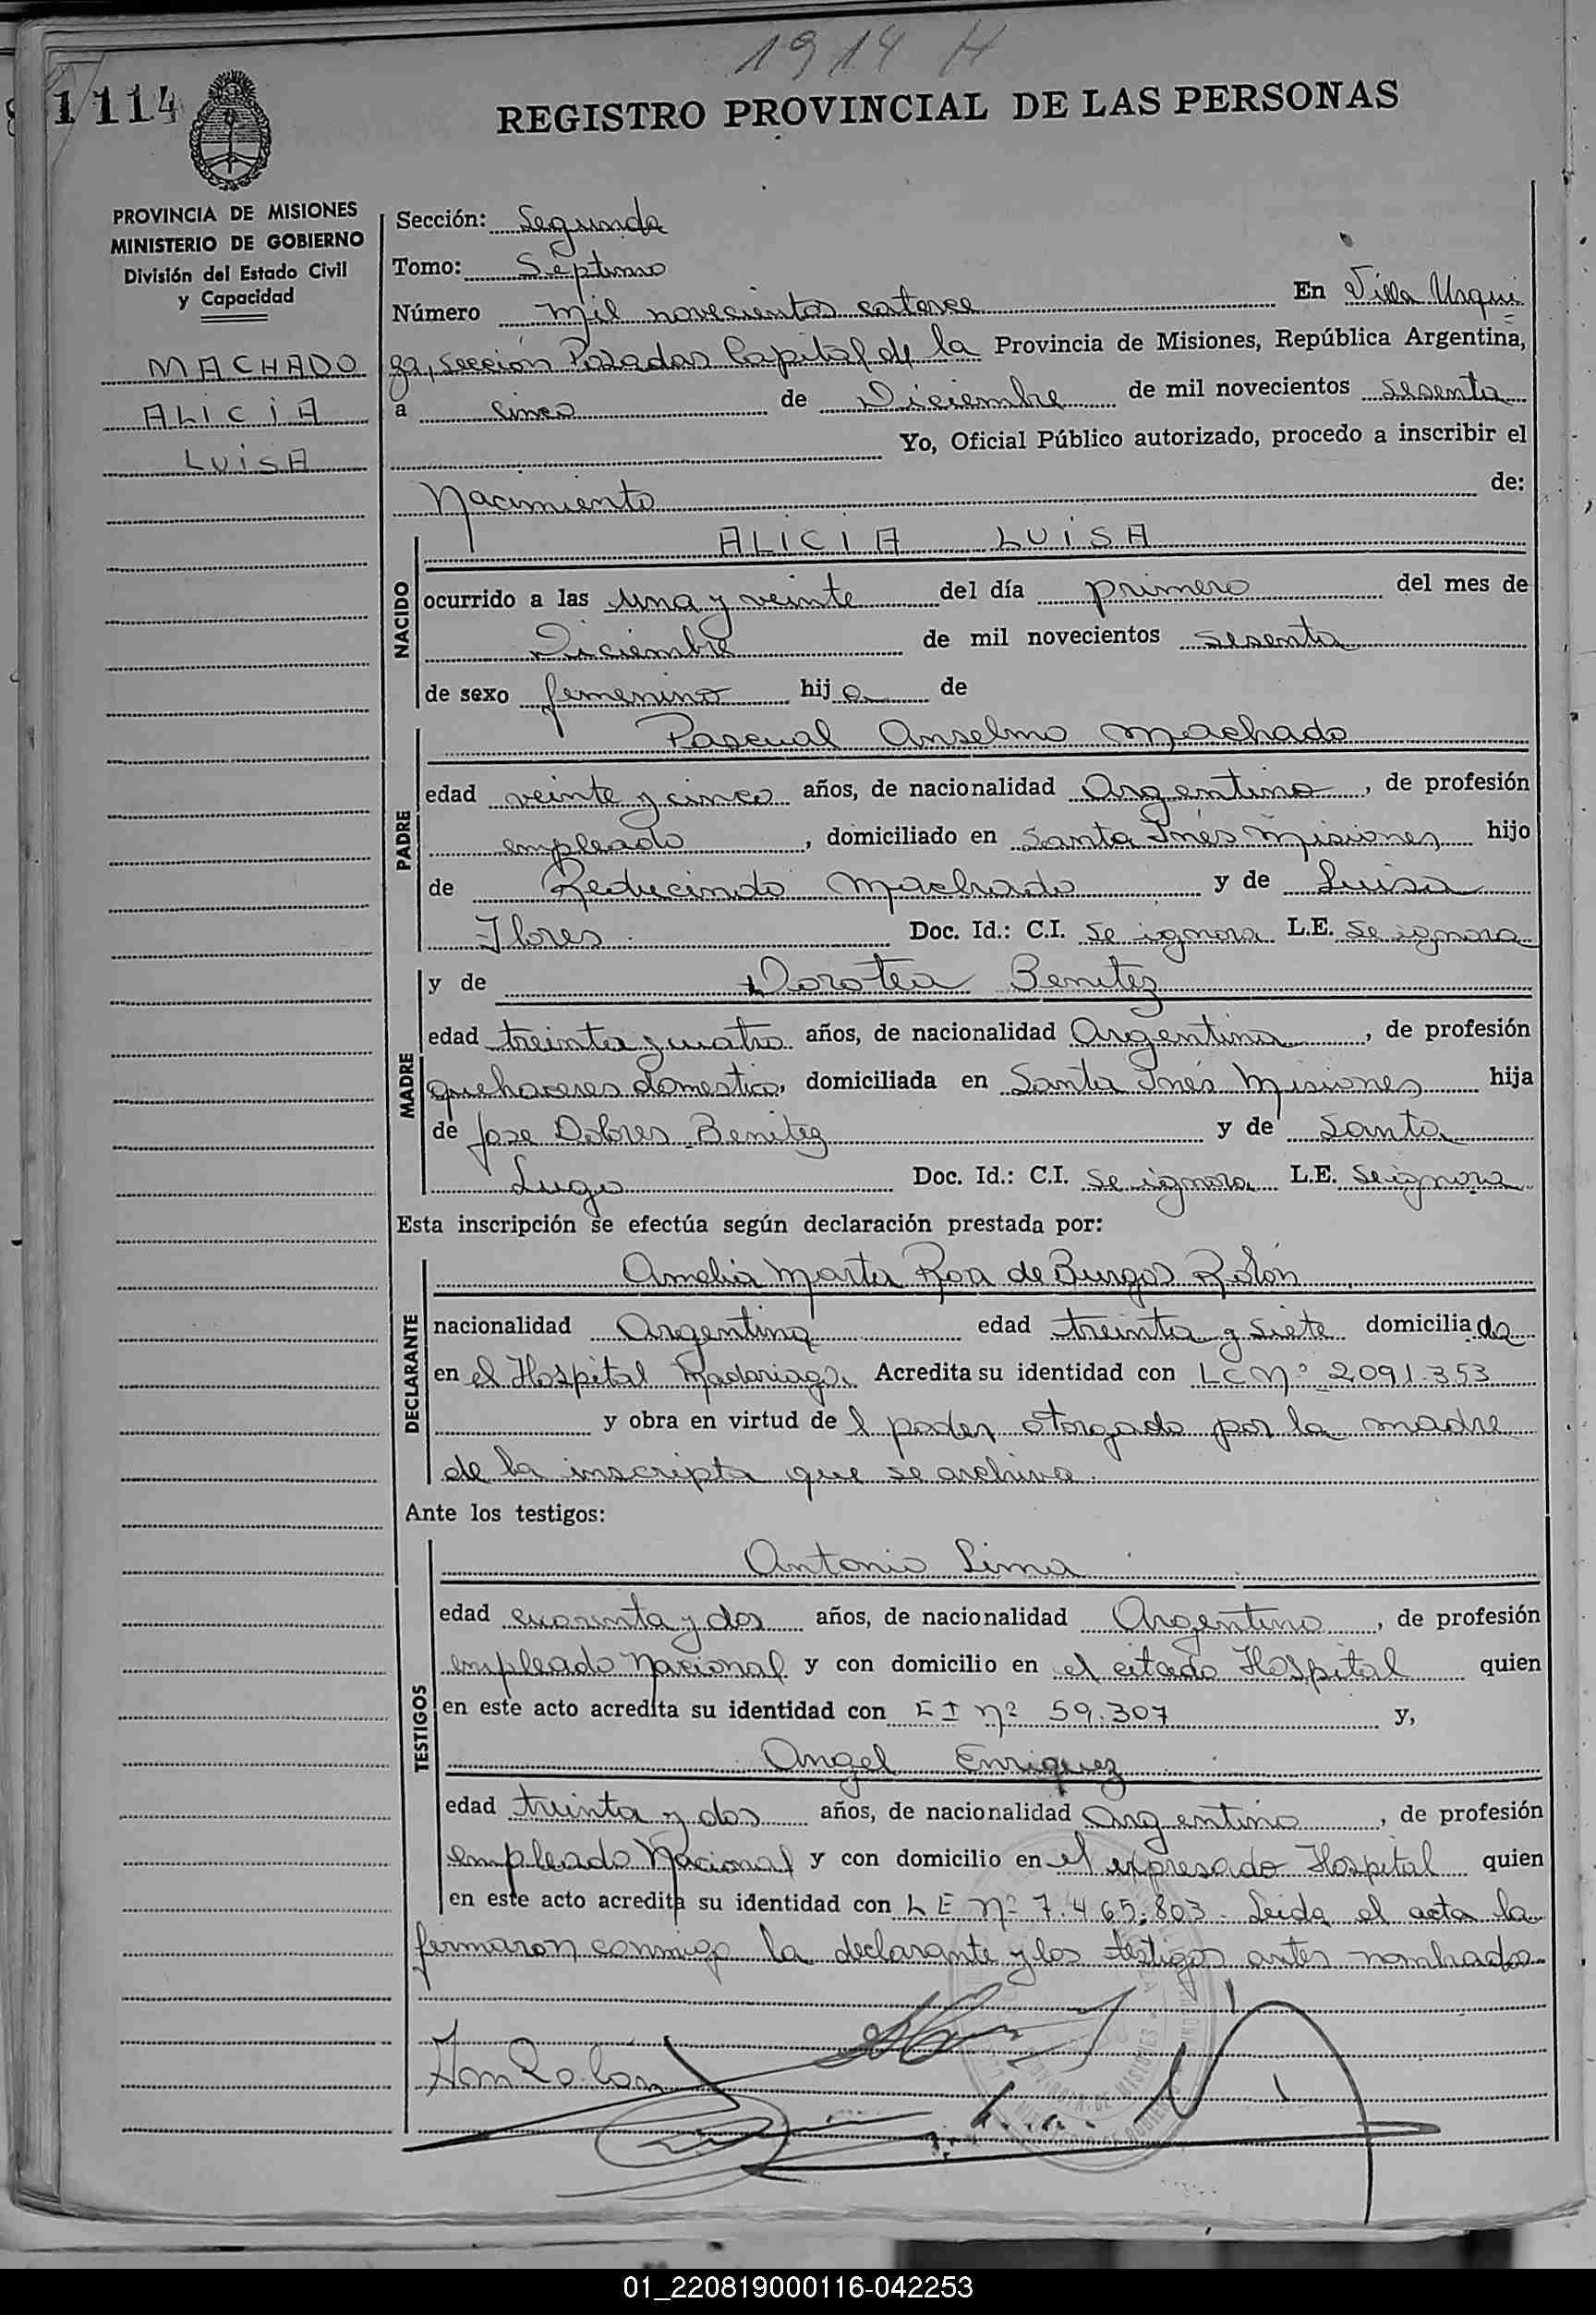 1914 H
1114
REGISTRO PROVINCIAL DE LAS PERSONAS
PROVINCIA DE MISIONES
MINISTERIO DE GOBIERNO
División del Estado Civil
y Capacidad
MACHADO
ALICIA
LUISA
Sección: Segunda
Tomo: Séptimo
Número mil novecientos catorce En Villa Urqui
za, Sección Posadas Capital de la Provincia de Misiones, República Argentina,
a cinco de Diciembre de mil novecientos sesenta
Yo, Oficial Público autorizado, procedo a inscribir el
Nacimiento de:
NACIDO
ALICIA LUISA
ocurrido a las una y veinte del día primero del mes de
Diciembre de mil novecientos sesenta
de sexo femenino hija de
PADRE
Pascual Anselmo Machado
edad veinte y cinco años, de nacionalidad Argentina, de profesión
empleado, domiciliado en Santa Inés Misiones hijo
de Reducindo Machado y de Luisa
Flores Doc. Id.: C.I. se ignora L.E. se ignora
MADRE
y de Dorotea Benitez
edad treinta y cuatro años, de nacionalidad Argentina, de profesión
quehaceres domestico, domiciliada en Santa Inés Misiones hija
de Jose Dolores Benitez y de Santa
Lugo Doc. Id.: C.I. se ignora L.E. se ignora
Esta inscripción se efectúa según declaración prestada por:
DECLARANTE
Amelia Marta Roa de Burgos Rolón
nacionalidad Argentina edad treinta y siete domiciliada
en el Hospital Madariaga. Acredita su identidad con LC Nº 2091.353
y obra en virtud del poder otorgado por la madre
de la inscripta que se archiva.
Ante los testigos:
TESTIGOS
Antonio Lima
edad cuarenta y dos años, de nacionalidad Argentino, de profesión
empleado Nacional y con domicilio en el citado Hospital quien
en este acto acredita su identidad con nº 59.307 y,
Angel Enriquez
edad treinta y dos años, de nacionalidad Argentino, de profesión
empleado Nacional y con domicilio en el expresado Hospital quien
en este acto acredita su identidad con LE nº 7.465.803. Leida el acta la
firmaron conmigo la declarante y los testigos antes nombrados
01_220819000116-042253